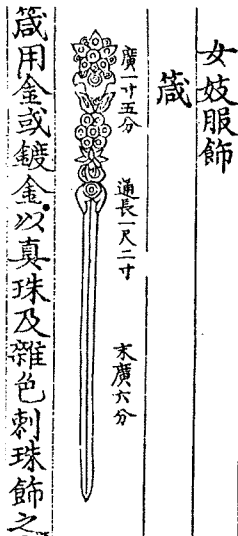 女妓服飾
箴
廣一寸五分
通長一尺二寸
末廣六分
箴用金或鍍金以真珠及雜色刺珠飾之